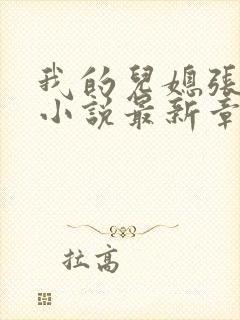 我的兒媳張
小說最新章
拉高